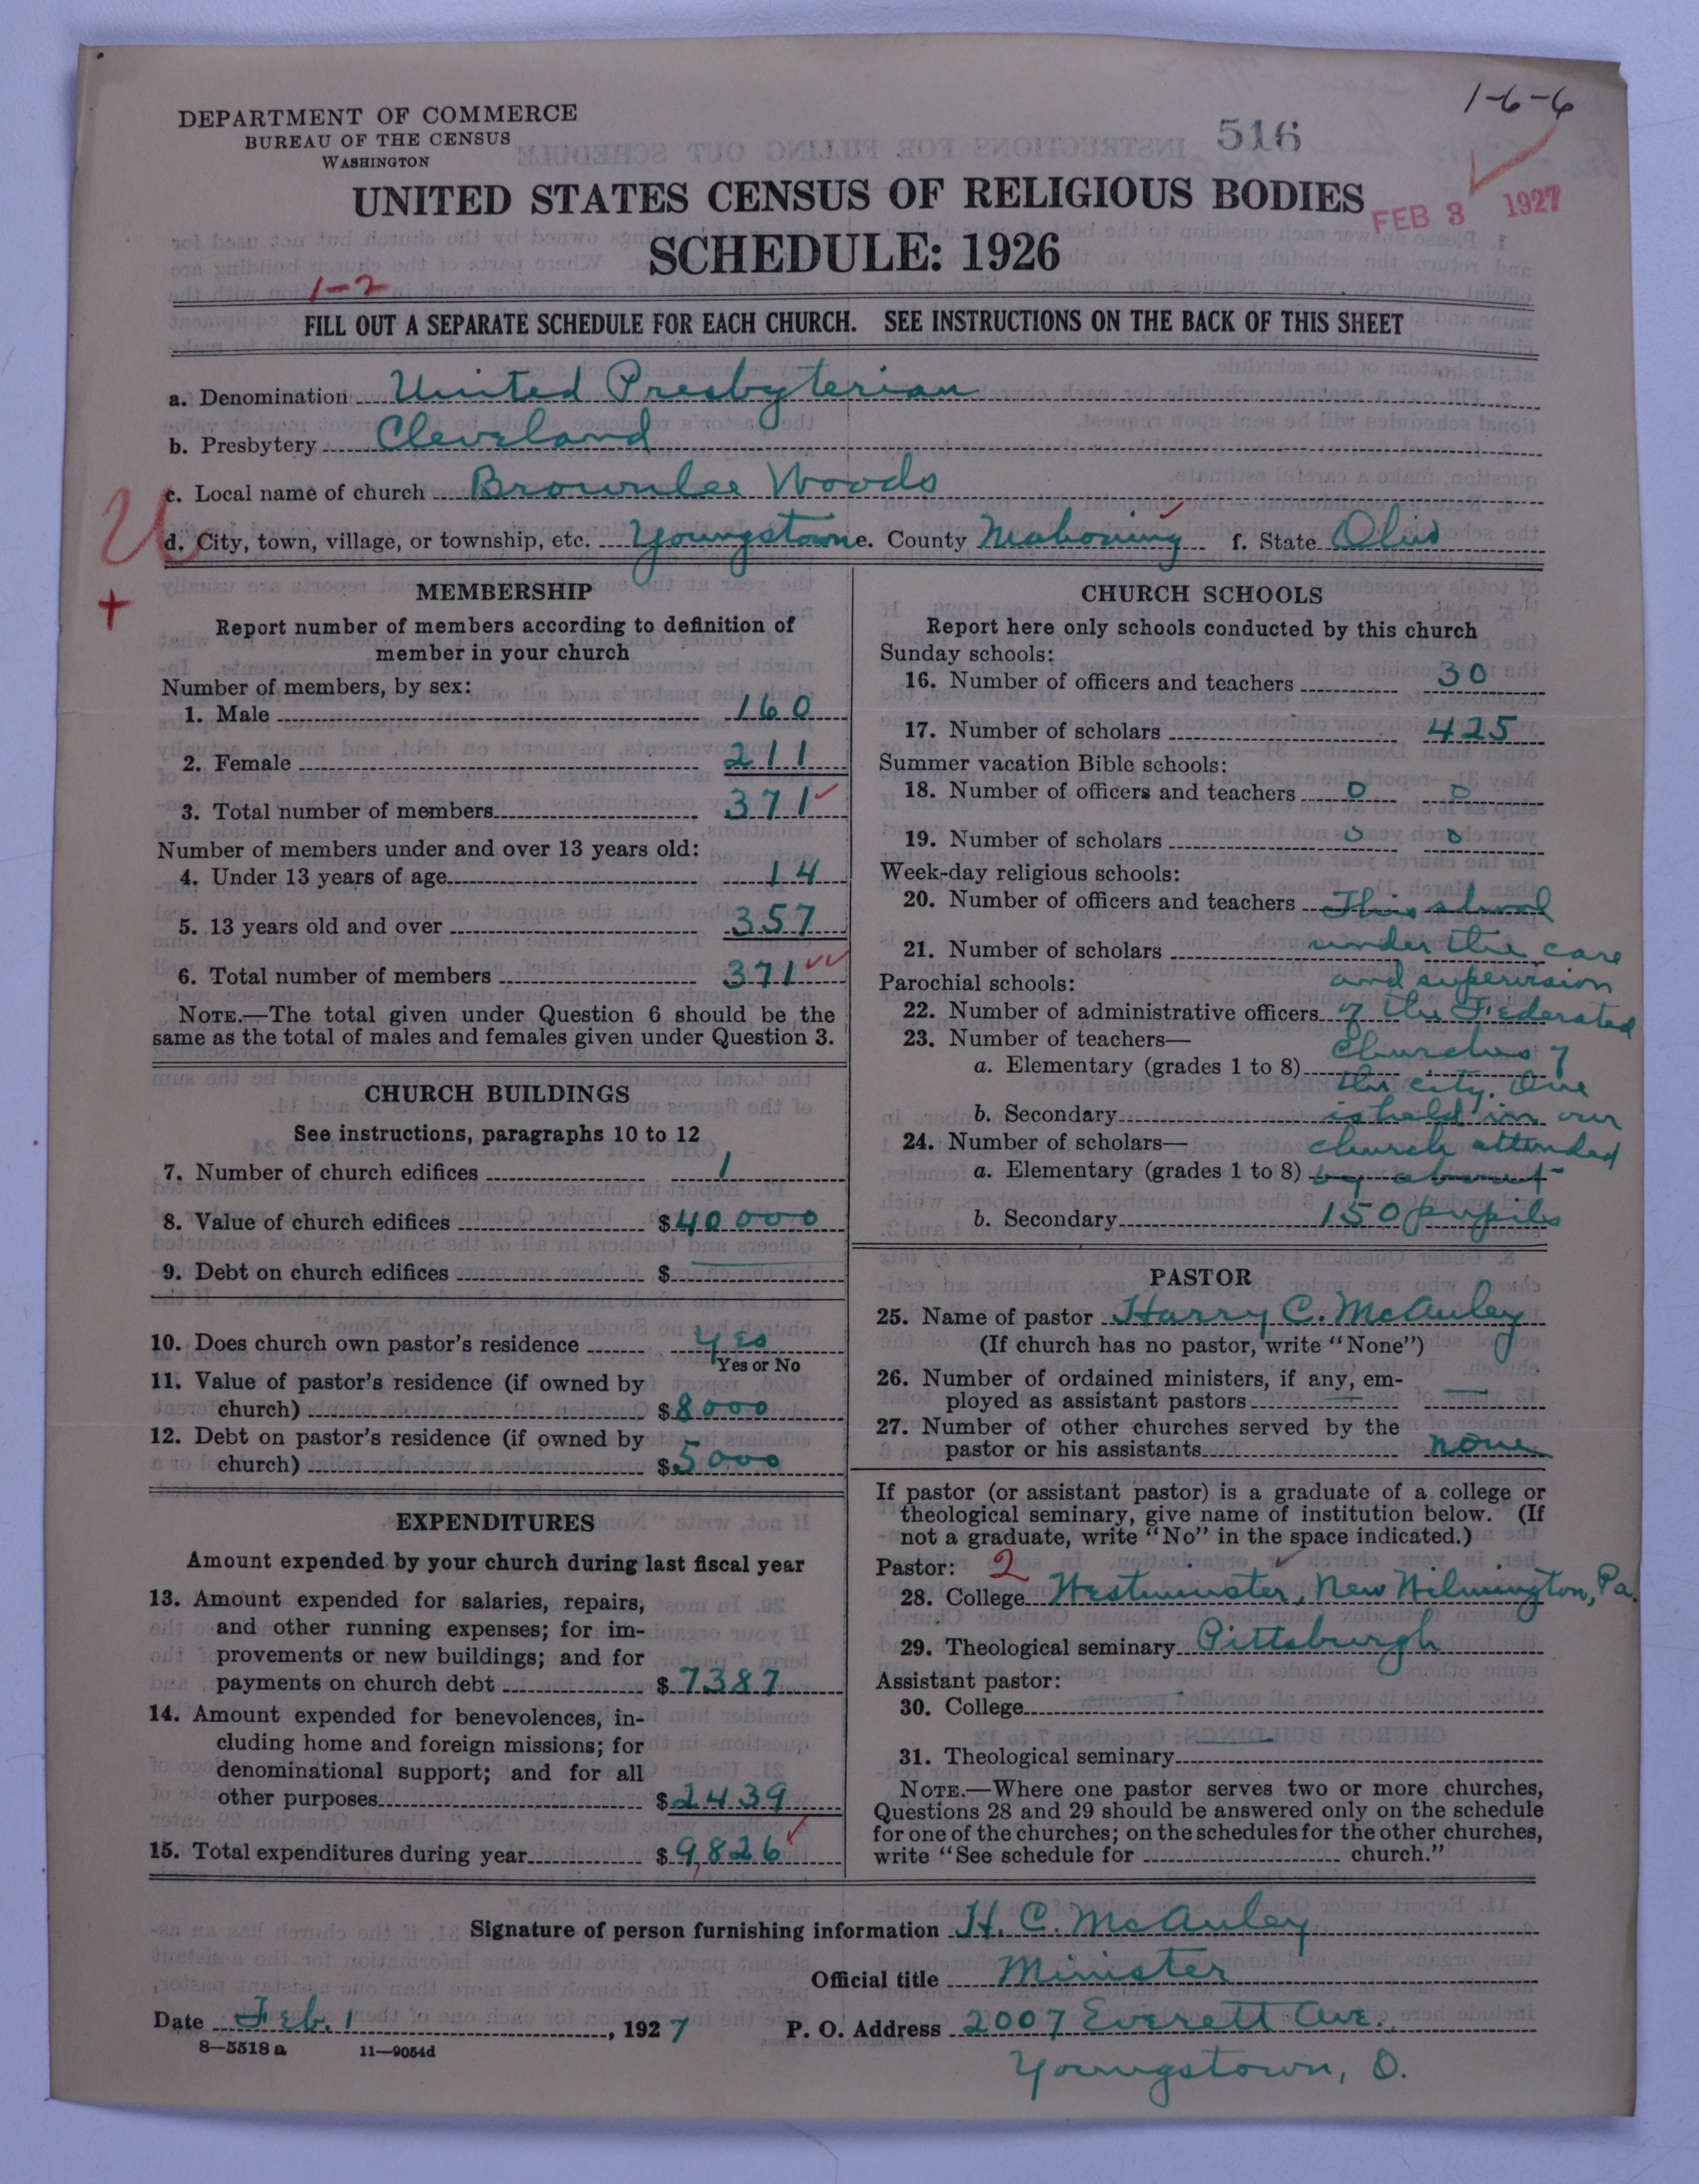 1-6-6
DEPARTMENT OF COMMERCE
BUREAU OF THE CENSUS
WASHINGTON
516
UNITED STATES CENSUS OF RELIGIOUS BODIES
FEB 3 1927
SCHEDULE: 1926
1-2
FILL OUT A SEPARATE SCHEDULE FOR EACH CHURCH. SEE INSTRUCTIONS ON THE BACK OF THIS SHEET
a. Denomination United Presbyterian
b. Presbytery Cleveland
c. Local name of church Brownlee Woods
U
d. City, town, village, or township, etc. Youngstown e. County Mahoning f. State Ohio
+
MEMBERSHIP
Report number of members according to definition of
member in your church
Number of members, by sex:
1. Male 160
2. Female 211
3. Total number of members 371
Number of members under and over 13 years old:
4. Under 13 years of age 14
5. 13 years old and over 357
6. Total number of members 371
NOTE.—The total given under Question 6 should be the
same as the total of males and females given under Question 3.
CHURCH BUILDINGS
See instructions, paragraphs 10 to 12
7. Number of church edifices 1
8. Value of church edifices $40000
9. Debt on church edifices $
10. Does church own pastor's residence yes
Yes or No
11. Value of pastor's residence (if owned by
church) $8000
12. Debt on pastor's residence (if owned by
church) $5000
EXPENDITURES
Amount expended by your church during last fiscal year
13. Amount expended for salaries, repairs,
and other running expenses; for im-
provements or new buildings; and for
payments on church debt $7387
14. Amount expended for benevolences, in-
cluding home and foreign missions; for
denominational support; and for all
other purposes $2439
15. Total expenditures during year $9,826
CHURCH SCHOOLS
Report here only schools conducted by this church
Sunday schools:
16. Number of officers and teachers 30
17. Number of scholars 425
Summer vacation Bible schools:
18. Number of officers and teachers 0 0
19. Number of scholars 0 0
Week-day religious schools:
20. Number of officers and teachers This school
21. Number of scholars under the care
Parochial schools: and supervision
22. Number of administrative officers of the Federated
23. Number of teachers— Churches of
a. Elementary (grades 1 to 8) the city. One
b. Secondary is held in our
24. Number of scholars— church attended
a. Elementary (grades 1 to 8) by about
b. Secondary 150 pupils
PASTOR
25. Name of pastor Harry C. McAuley
(If church has no pastor, write "None")
26. Number of ordained ministers, if any, em-
ployed as assistant pastors —
27. Number of other churches served by the
pastor or his assistants none
If pastor (or assistant pastor) is a graduate of a college or
theological seminary, give name of institution below. (If
not a graduate, write "No" in the space indicated.)
Pastor: 2
28. College Westminster, New Wilmington, Pa.
29. Theological seminary Pittsburgh
Assistant pastor:
30. College
31. Theological seminary
NOTE.—Where one pastor serves two or more churches,
Questions 28 and 29 should be answered only on the schedule
for one of the churches; on the schedules for the other churches,
write "See schedule for church."
Signature of person furnishing information H. C. McAuley
Official title Minister
Date Feb. 1, 1927 P. O. Address 2007 Everett Ave.
8—5518a 11—9054d
Youngstown, O.